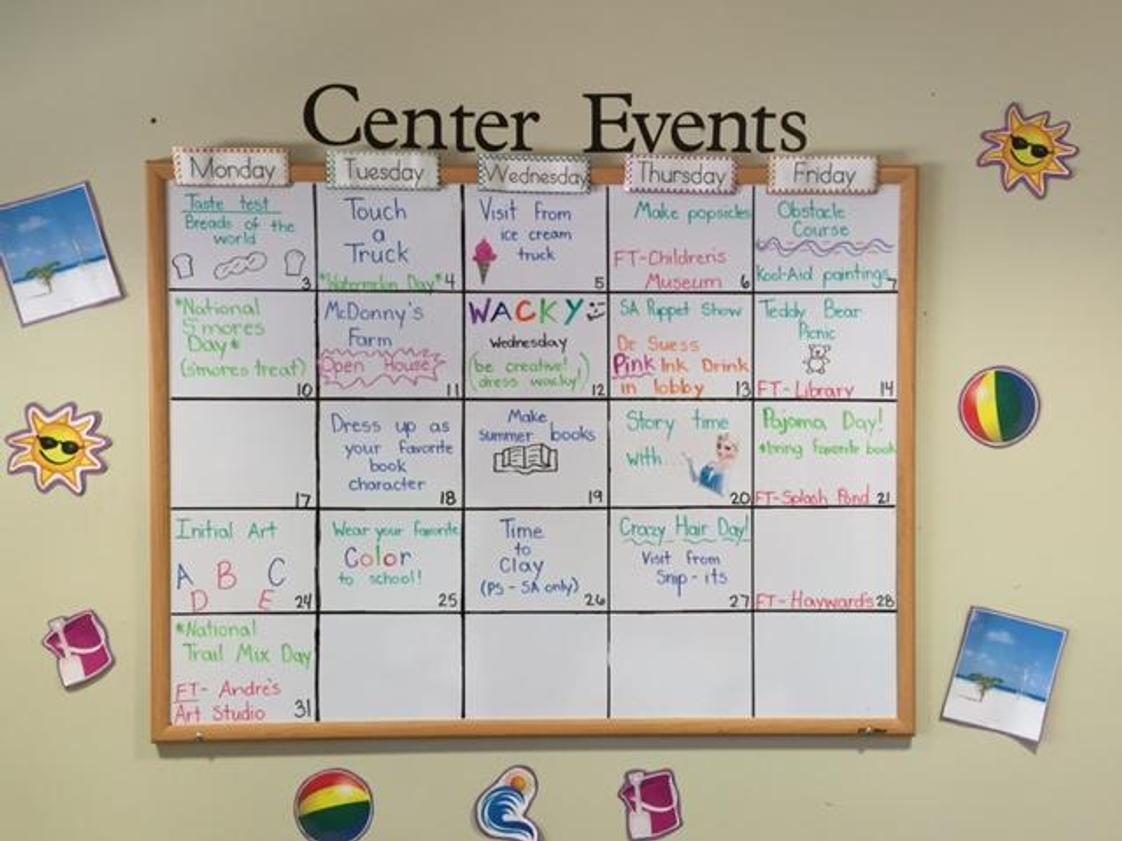 Center Events
Monday
Tuesday
Wednesday
Thursday
Friday
Taste test
Breads of the
world
3
Touch
a
Truck
*Watermelon Day* 4
Visit from
ice cream
truck
5
Make popsicles
FT-Children's
Museum 6
Obstacle
Course
Kool-Aid paintings 7
*National
S'mores
Day*
(s'mores treat)
10
McDonny's
Farm
Open House
11
WACKY
Wednesday
(be creative!
dress wacky!)
12
SA Puppet Show
Dr Suess
Pink Ink Drink
in lobby 13
Teddy Bear
Picnic
FT-Library 14
17
Dress up as
your favorite
book
character 18
Make
summer books
19
Story time
with...
20
Pajama Day!
*bring favorite book
FT-Splash Pond 21
Initial Art
A B C
D E 24
Wear your favorite
Color
to school!
25
Time
to
Clay
(PS-SA only)
26
Crazy Hair Day!
Visit from
Snip-its
27
FT-Haywards 28
*National
Trail Mix Day
FT- Andre's
Art Studio 31